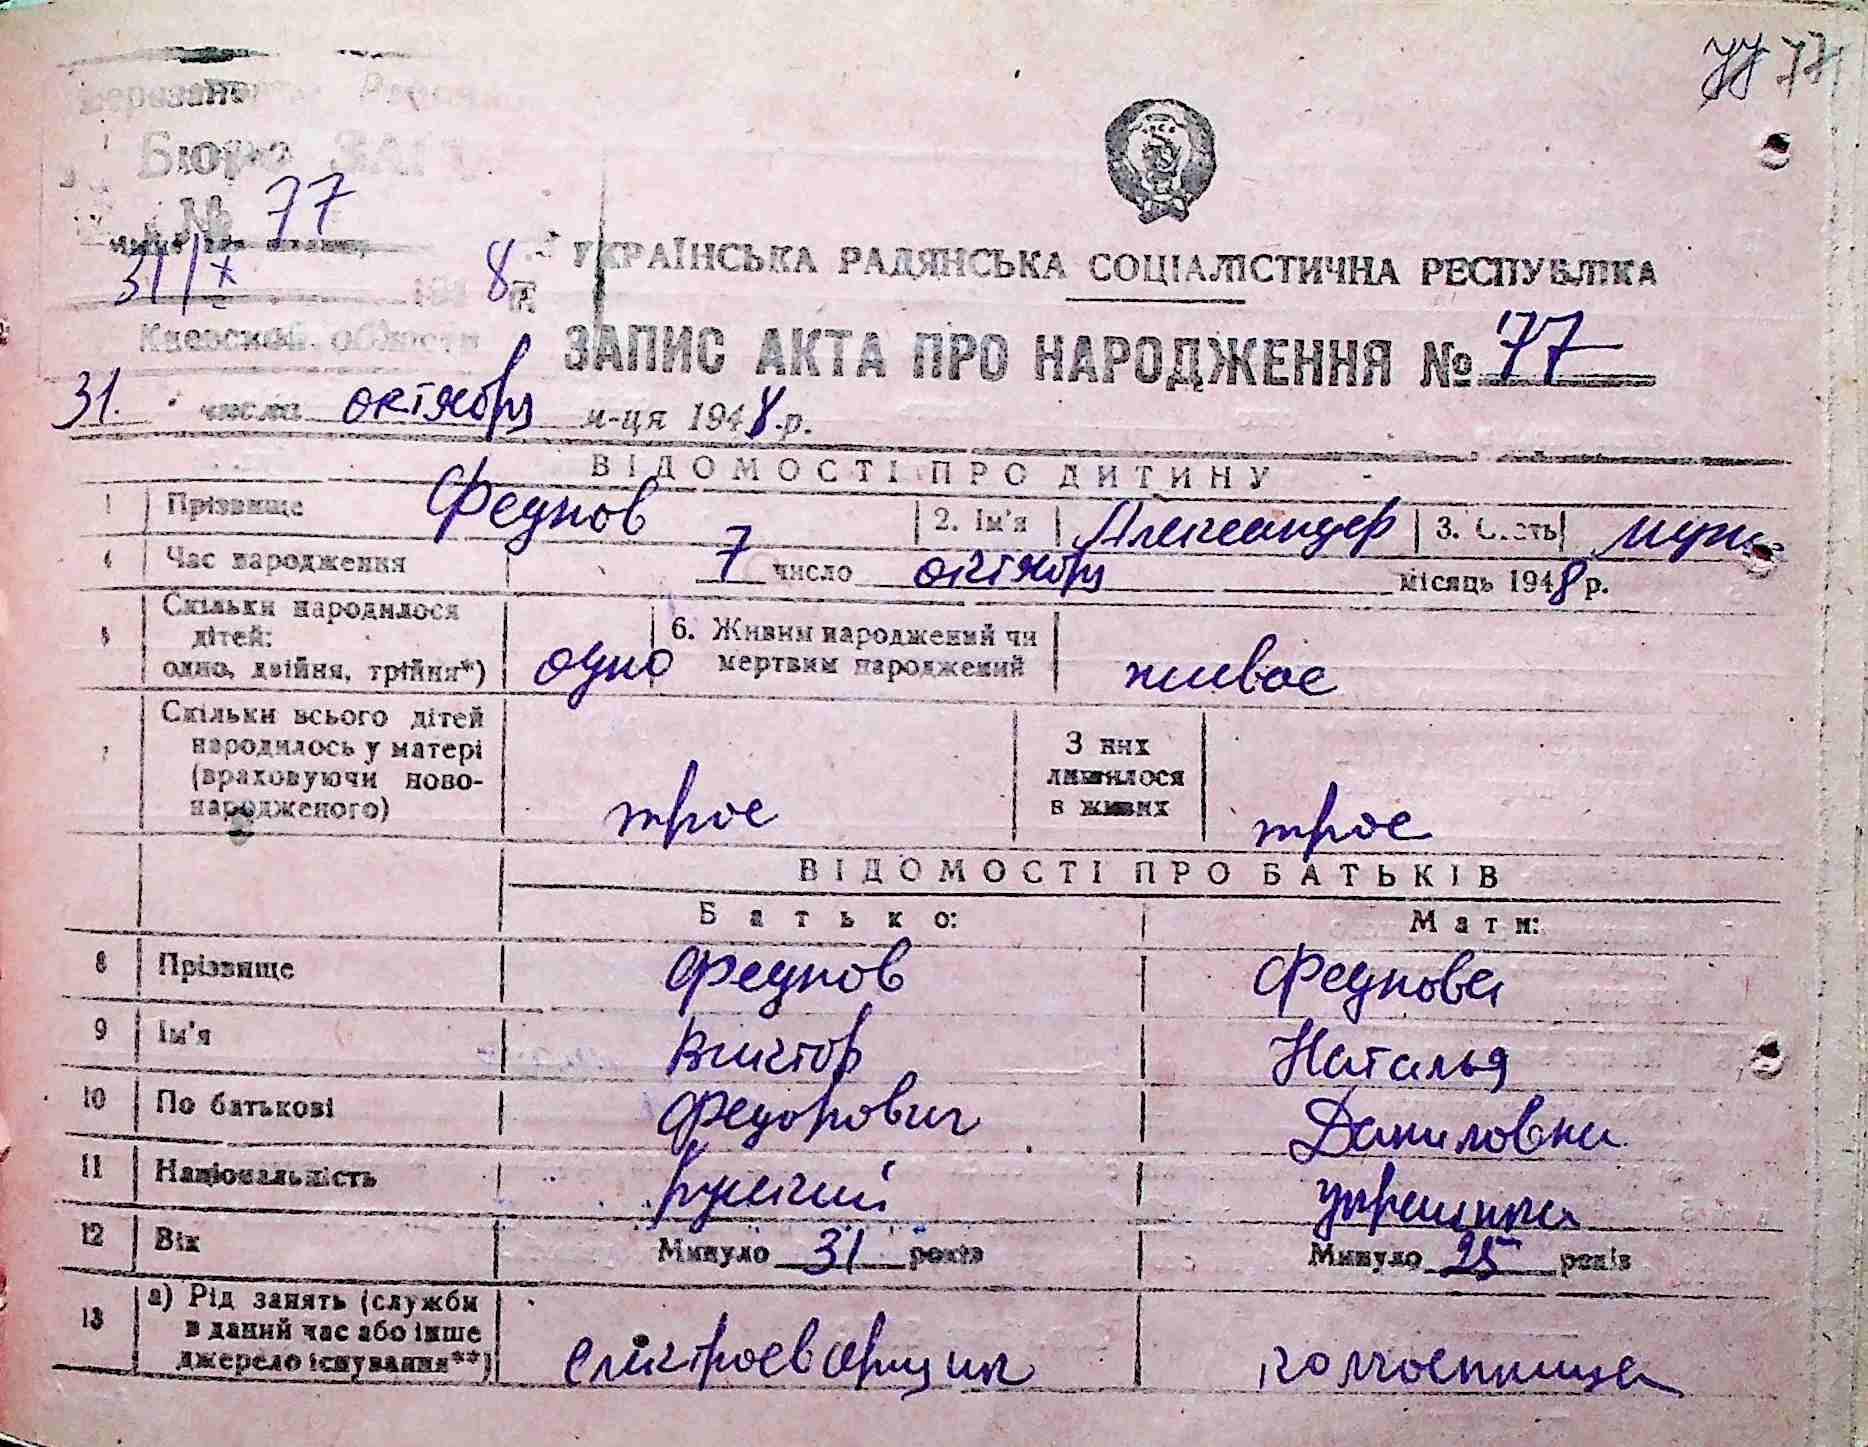 77 77
Бюро ЗАГС
№ 77
31/X 1948 г.
Киевской области
УКРАЇНСЬКА РАДЯНСЬКА СОЦІАЛІСТИЧНА РЕСПУБЛІКА
ЗАПИС АКТА ПРО НАРОДЖЕННЯ № 77
31. числа октября м-ця 1948 р.
ВІДОМОСТІ ПРО ДИТИНУ
1 Прізвище Федунов 2. Ім'я Александр 3. Стать муж.
4 Час народження 7 число октября місяць 1948 р.
5 Скільки народилося дітей: одно, двійня, трійня*) одно 6. Живим народжений чи мертвим народжений живое
7 Скільки всього дітей народилось у матері (враховуючи новонародженого) трое З них лишилося в живих трое
ВІДОМОСТІ ПРО БАТЬКІВ
Батько: Мати:
8 Прізвище
9 Ім'я Виктор Наталья
10 По батькові Федорович Даниловна
11 Національність Русский украинка
12 Вік Минуло 31 років Минуло 25 років
13 а) Рід занять (служби в даний час або інше джерело існування**) електросварщик колхозница